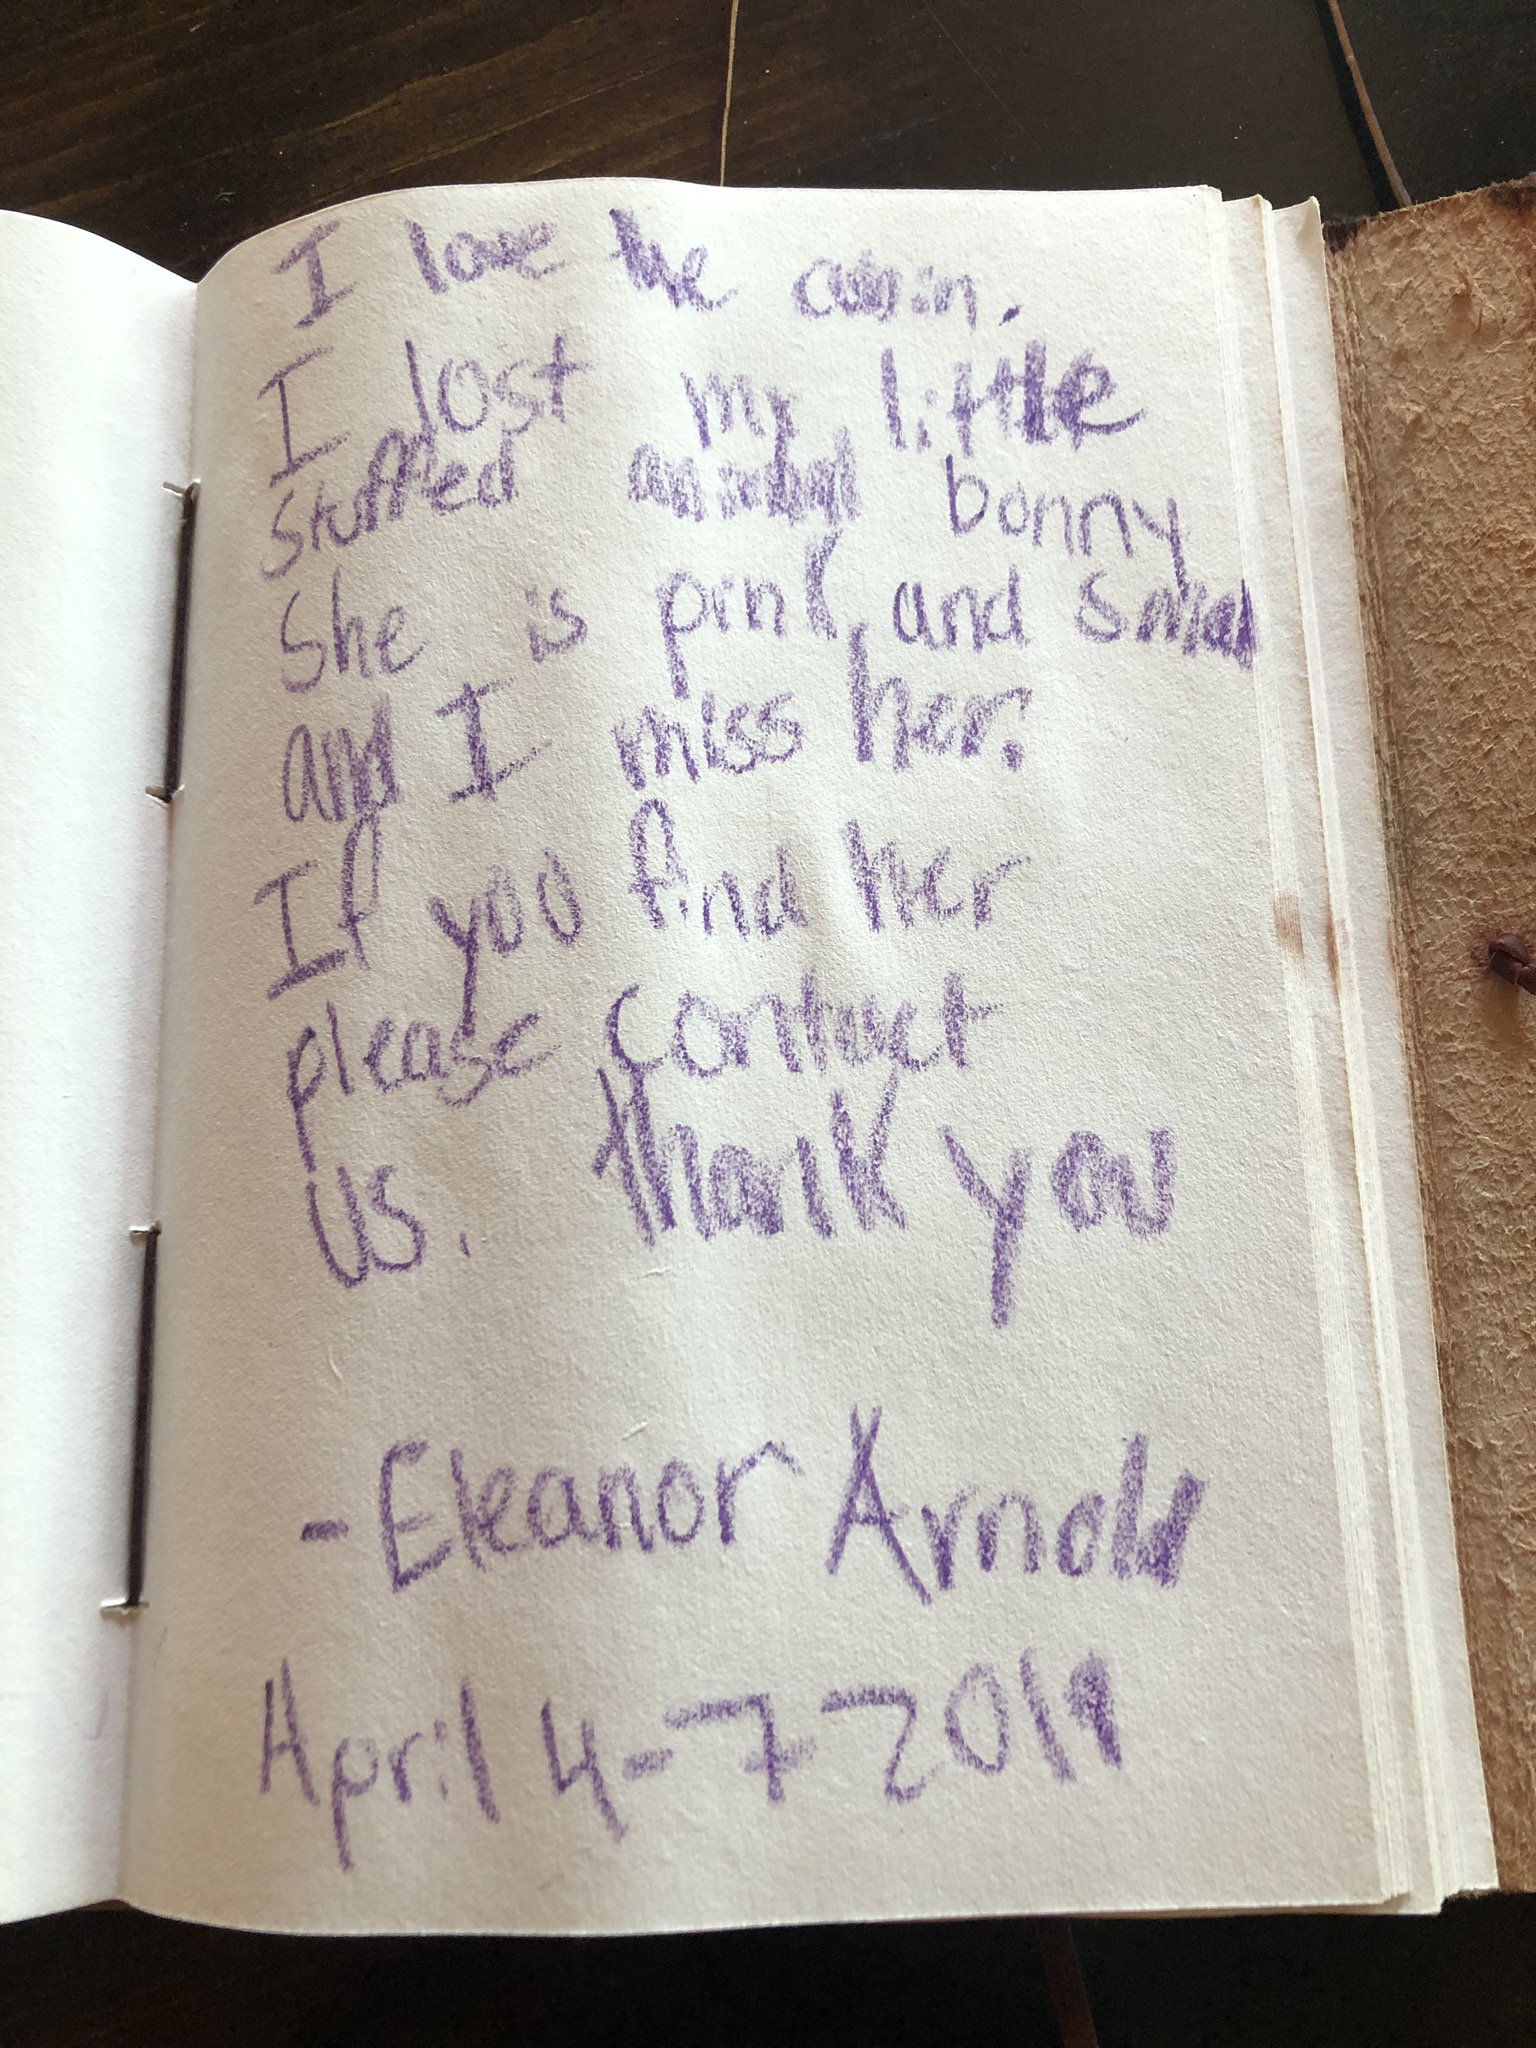 I love the cabin.
I lost my little
stuffed animal bonny
She is pink and small
and I miss her.
If you find her
please contact
us. Thank you
-Eleanor Arnold
April 4-7 2019